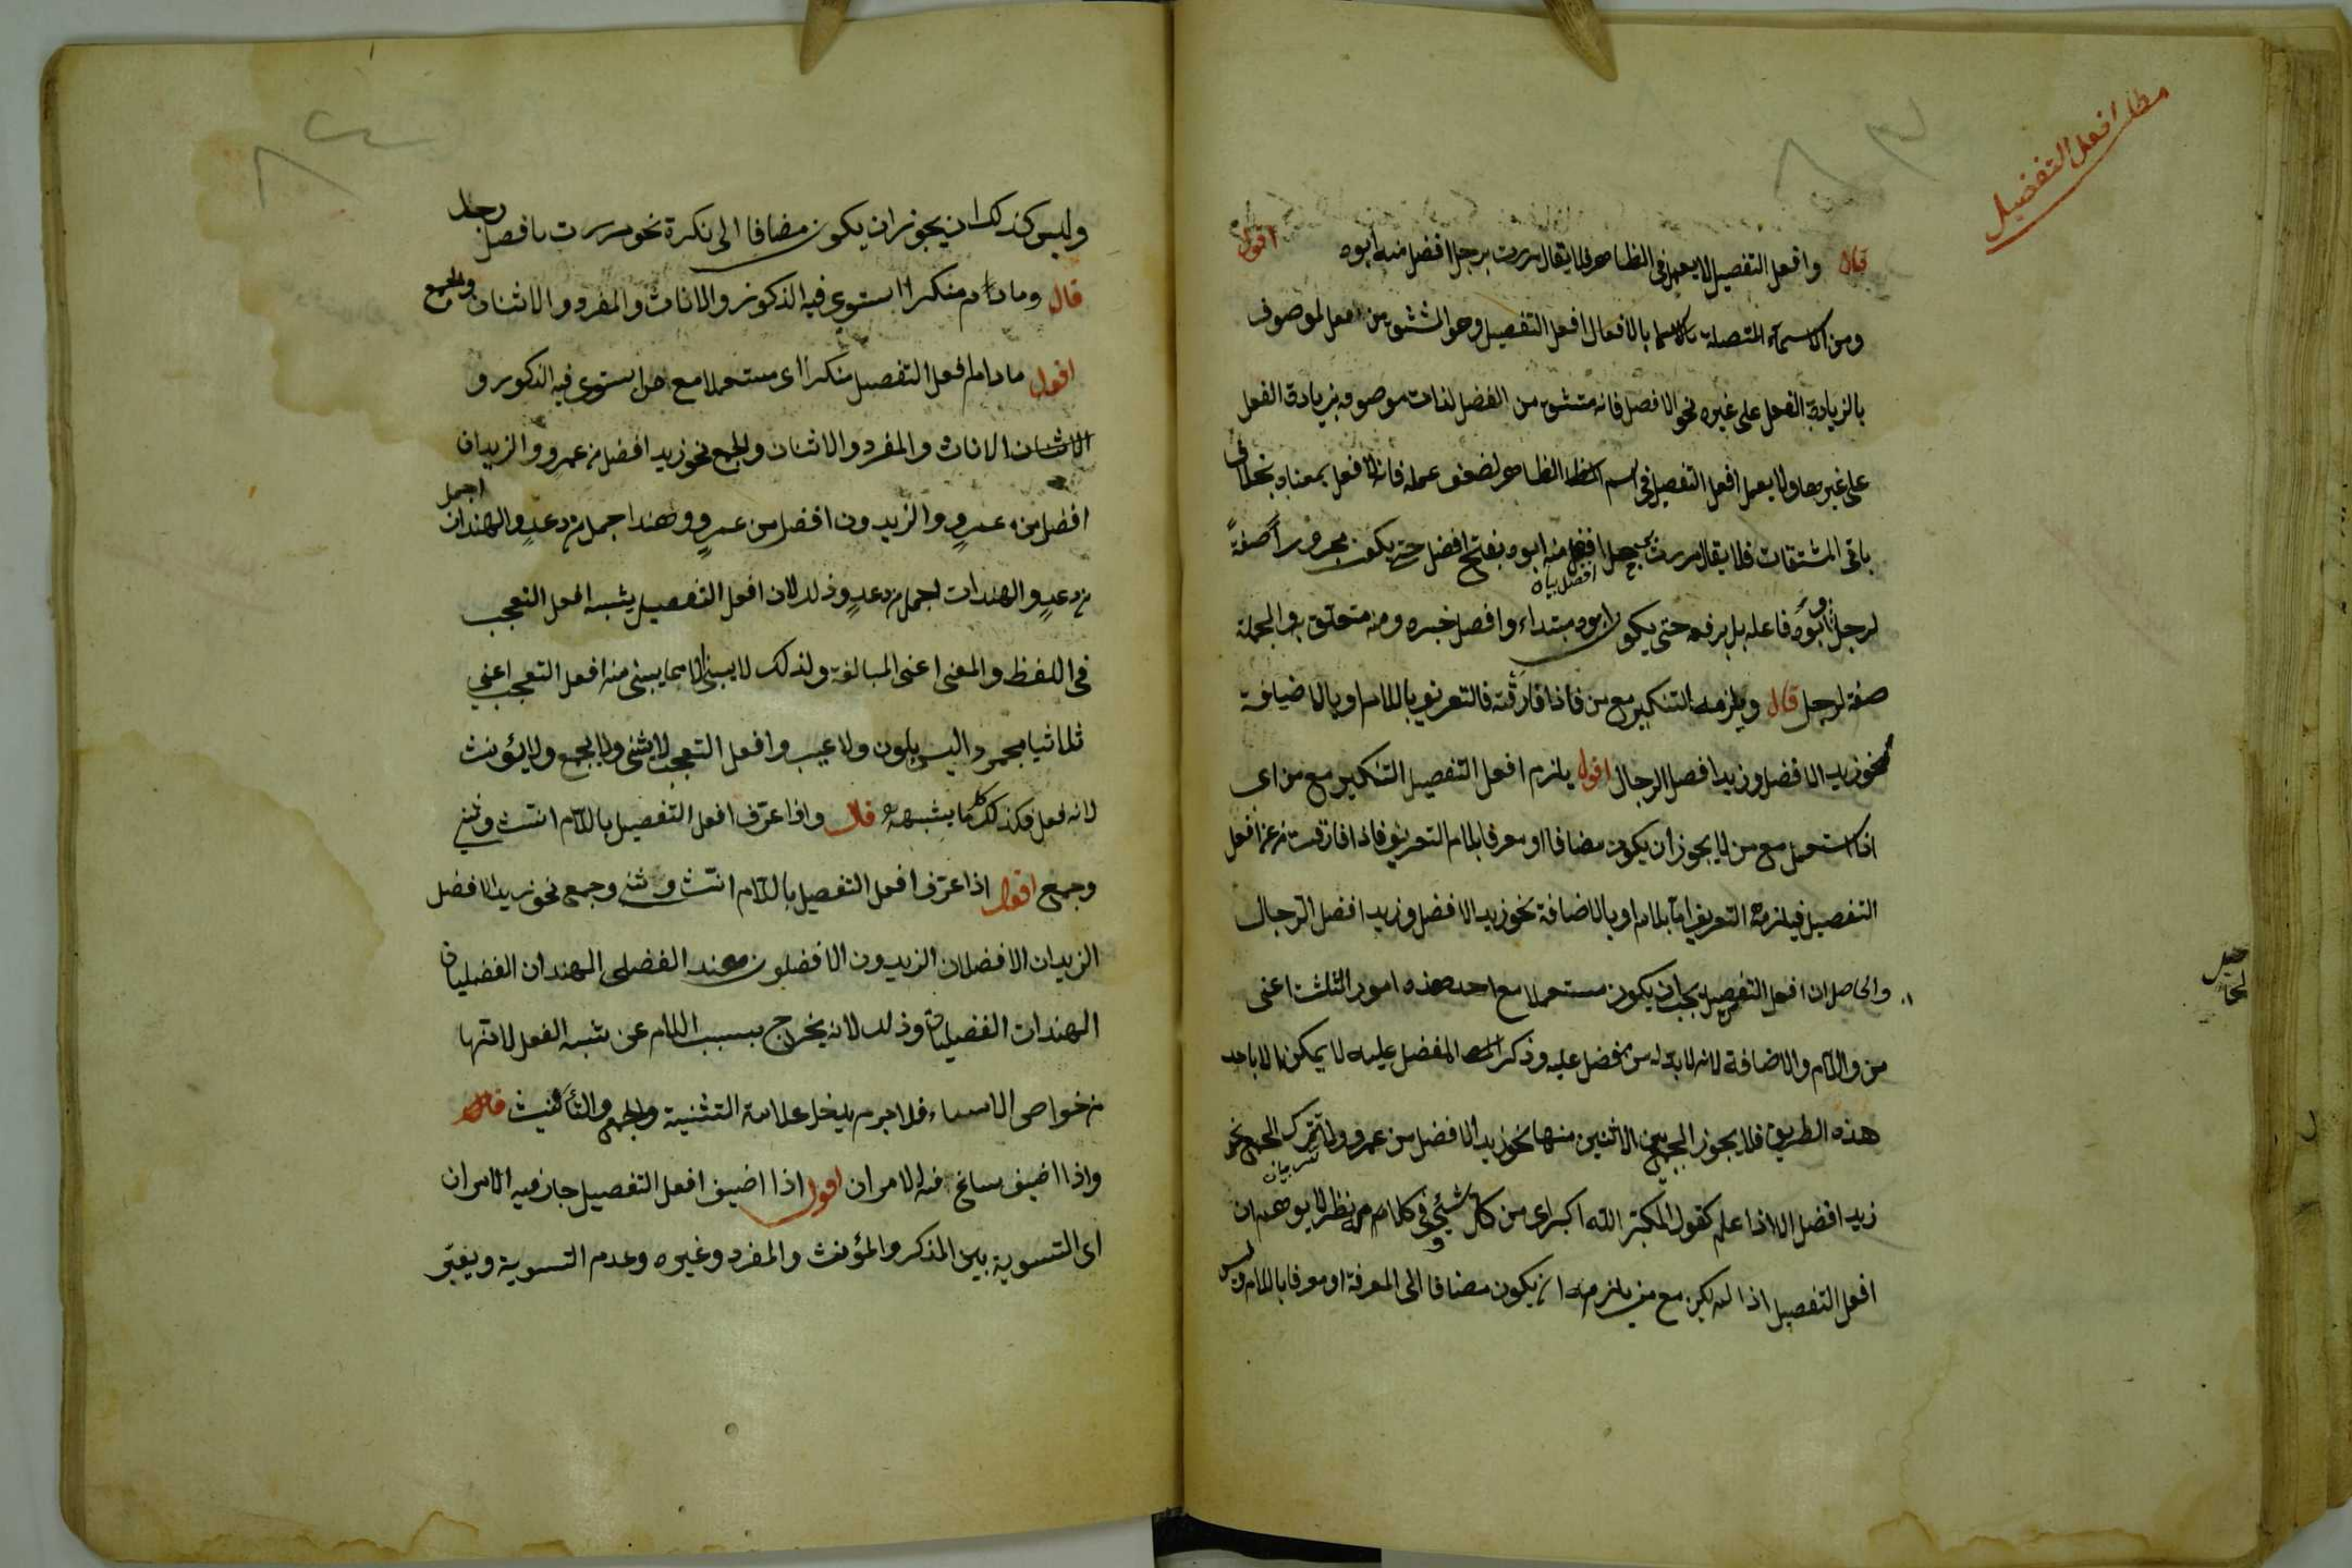 مطلب افعل التفضيل
قال وافعل التفضيل لا يعمل فى الظاهر فلا يقال مررت برجل افضل منه ابوه اقول
ومن الاسماء المتصلة بالافعال افعل التفضيل وهو المشتق من افعل لموصوف
بالزيادة الفعل على غيره نحو الافضل فانه مشتق من الفضل لذات موصوفه بزيادة الفعل
على غيرها ولا يعمل افعل التفضيل فى اسم الظاهر لضعف عمله فانه لا فعل بمعناه بخلاف
باقى المشتقات فلا يقال مررت برجل افضل منه ابوه بفتح افضل حتى يكون مجرورا صفة
افضل بيان
لرجل وابوه فاعله بل برفعه حتى يكون ابوه مبتداء وافضل خبره ومنه متعلق به والجملة
صفة لرجل قال ويلزمه التنكير مع من فاذا فارقته فالتعريف باللام او بالاضافة
نحو زيد الافضل وزيد افضل الرجال اقول يلزم افعل التفضيل التنكير مع من اى
اذا استعمل مع من لا يجوز ان يكون مضافا او معرفا بلام التعريف فاذا فارقت من عن افعل
التفضيل فيلزمه التعريف اما بلام او بالاضافة نحو زيد الافضل وزيد افضل الرجال
والحاصل ان افعل التفضيل يجب ان يكون مستعملا مع احد هذه امور الثلث اعنى
من واللام والاضافة لانه لا بد له من مفضل عليه وذكر المفضل عليه لا يمكن الا باحد
هذه الطريق فلا يجوز الجمع بين الاثنين منها نحو زيد الافضل من عمرو ولا ترك الجمع نحو
زيد افضل الا اذا علم كقول المكبر الله اكبر اى من كل شئ وفى كلام نظر لا يوهم ان
افعل التفضيل اذا لم يكن مع من يلزمه ان يكون مضافا الى المعرفة او معرفا باللام وليس
وليس كذلك ان يجوز ان يكون مضافا الى نكرة نحو مررت بافضل رجل
قال وما دام منكرا استوى فيه الذكور والاناث والمفرد والاثنان والجمع
اقول ما دام افعل التفضيل منكرا اى مستعملا مع من استوى فيه الذكور و
الاناث والمفرد والاثنان والجمع نحو زيد افضل من عمرو والزيدان
افضل من عمرو والزيدون افضل من عمرو وهند اجمل من دعد والهندان اجمل
من دعد والهندات اجمل من دعد وذلك لان افعل التفضيل يشبه افعل التعجب
فى اللفظ والمعنى اعنى المبالغة ولذلك لا يبنى الا مما يبنى منه افعل التعجب اعنى
ثلاثيا مجردا ليس بلون ولا عيب وافعل التعجب لا يثنى ولا يجمع ولا يؤنث
لانه فعل فكذلك ما يشبهه قال واذا عرف افعل التفضيل باللام انث وثنى
وجمع اقول اذا عرف افعل التفضيل باللام انث وثنى وجمع نحو زيد الافضل
الزيدان الافضلان الزيدون الافضلون هند الفضلى الهندان الفضليان
الهندات الفضليات وذلك لانه يخرج بسبب اللام عن شبه الفعل لانها
من خواص الاسماء فلا جرم يدخل علامة التثنية والجمع والتأنيث قال
واذا اضيف ساغ فيه الامران اقول اذا اضيف افعل التفضيل جاز فيه الامران
اى التسوية بين المذكر والمؤنث والمفرد وغيره وعدم التسوية ويغير